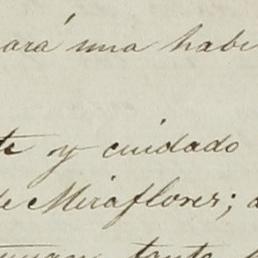 ará una habe
te y cuidado
de Miraflores; a
tanto